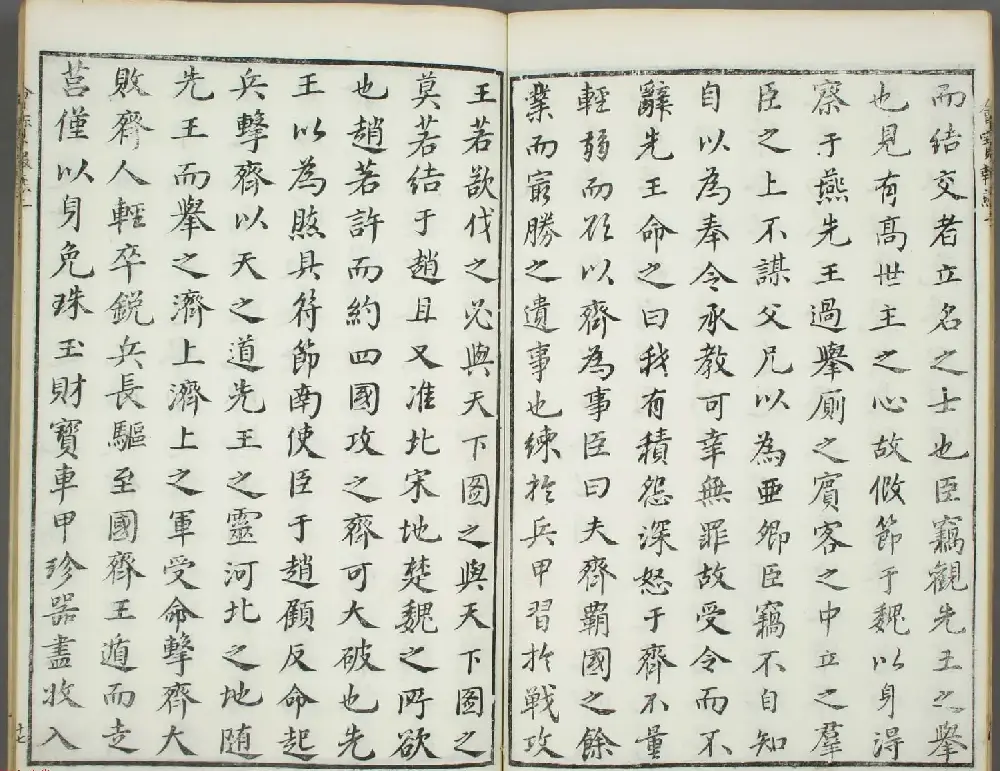 而結交者立名之士也臣竊觀先王之舉
也見有高世主之心故假節于魏以身得
察于燕先王過舉厠之賓客之中立之羣
臣之上不謀父兄以為亜卿臣竊不自知
自以為奉令承教可幸無罪故受令而不
辭先王命之曰我有積怨深怒于齊不量
輕弱而欲以齊為事臣曰夫齊霸國之餘
業而㝡勝之遺事也練扵兵甲習扵戰攻
王若欲伐之必與天下圖之與天下圖之
莫若結于趙且又淮北宋地楚魏之所欲
也趙若許而約四國攻之齊可大破也先
王以為然具符節南使臣于趙顧反命起
兵擊齊以天之道先王之靈河北之地随
先王而舉之濟上濟上之軍受命擊齊大
敗齊人輕卒鋭兵長驅至國齊王遁而走
莒僅以身免珠玉財寶車甲珍器盡收入